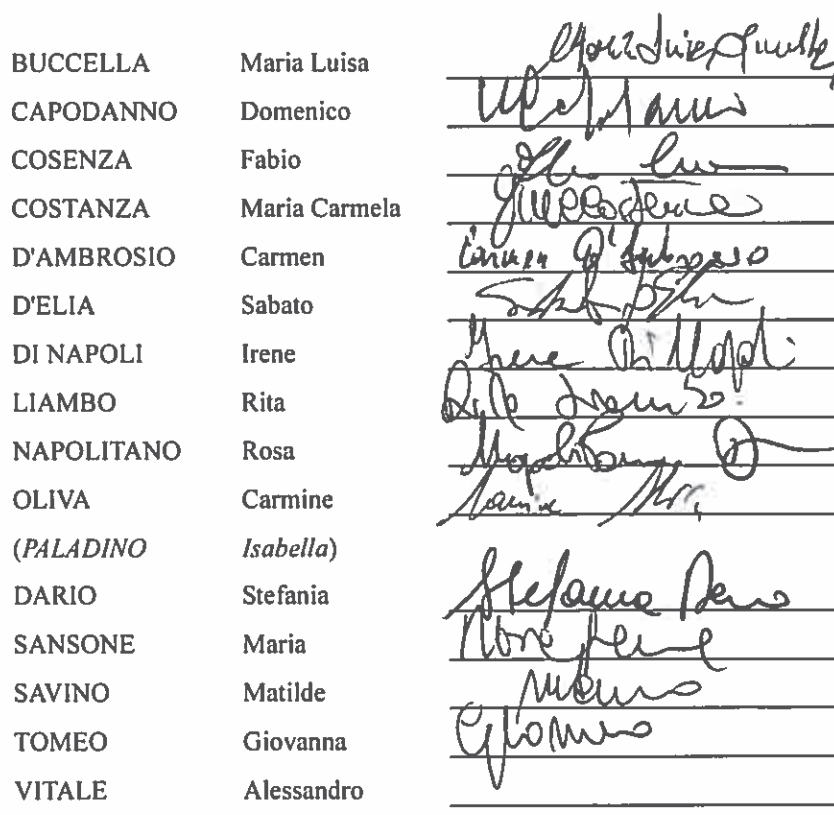 BUCCELLA Maria Luisa
CAPODANNO Domenico
COSENZA Fabio
COSTANZA Maria Carmela
D'AMBROSIO Carmen Carmen D'Ambrosio
D'ELIA Sabato
DI NAPOLI Irene Irene Di Napoli
LIAMBO Rita Rita
NAPOLITANO Rosa Napolitano
OLIVA Carmine Carmine
(PALADINO Isabella)
DARIO Stefania Stefania Dario
SANSONE Maria
SAVINO Matilde
TOMEO Giovanna
VITALE Alessandro